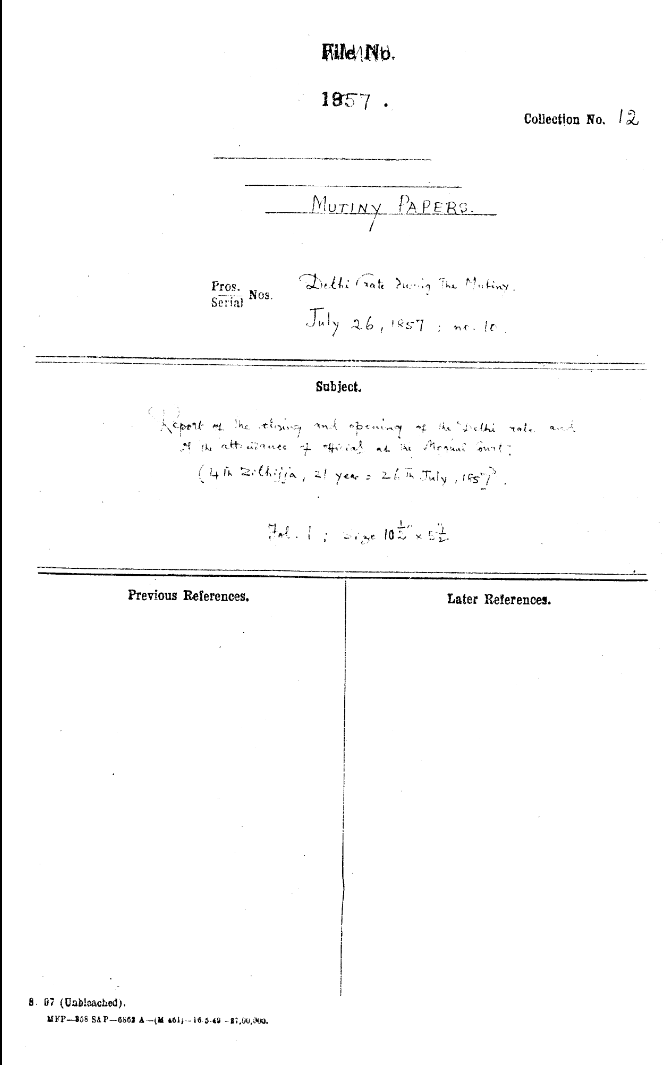 File No.
1857 .
Collection No. 12
MUTINY PAPERS.
Pros.
Serial Nos.
Delhi Gate During The Mutiny.
July 26, 1857 ; no. 10.
Subject.
Report of the closing and opening of the Delhi Gate and
of the attendance of official at the
(4th Zilhijja, 21 year = 26th July, 1857).
Fol. 1 ; Size 10 1/2" × 5 1/2"
Previous References.
Later References.
S. 97 (Unbleached).
MFP—858 S&P—6863 A—(M 461)—16-5-49—27,00,000.